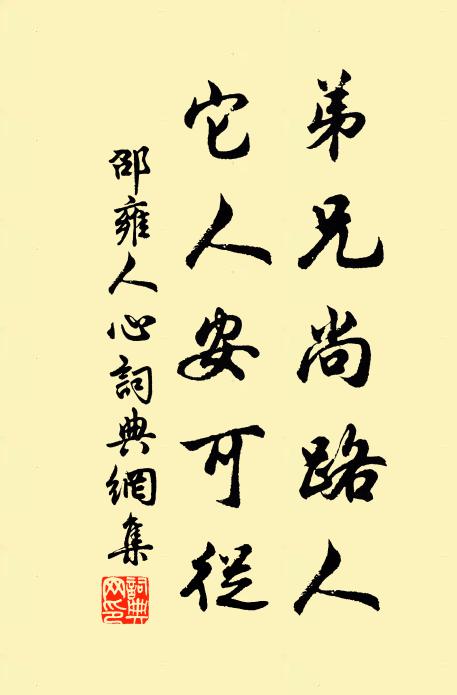 弟兄尚路人
它人安可從
邵雍人心詞典網集
詞典网印